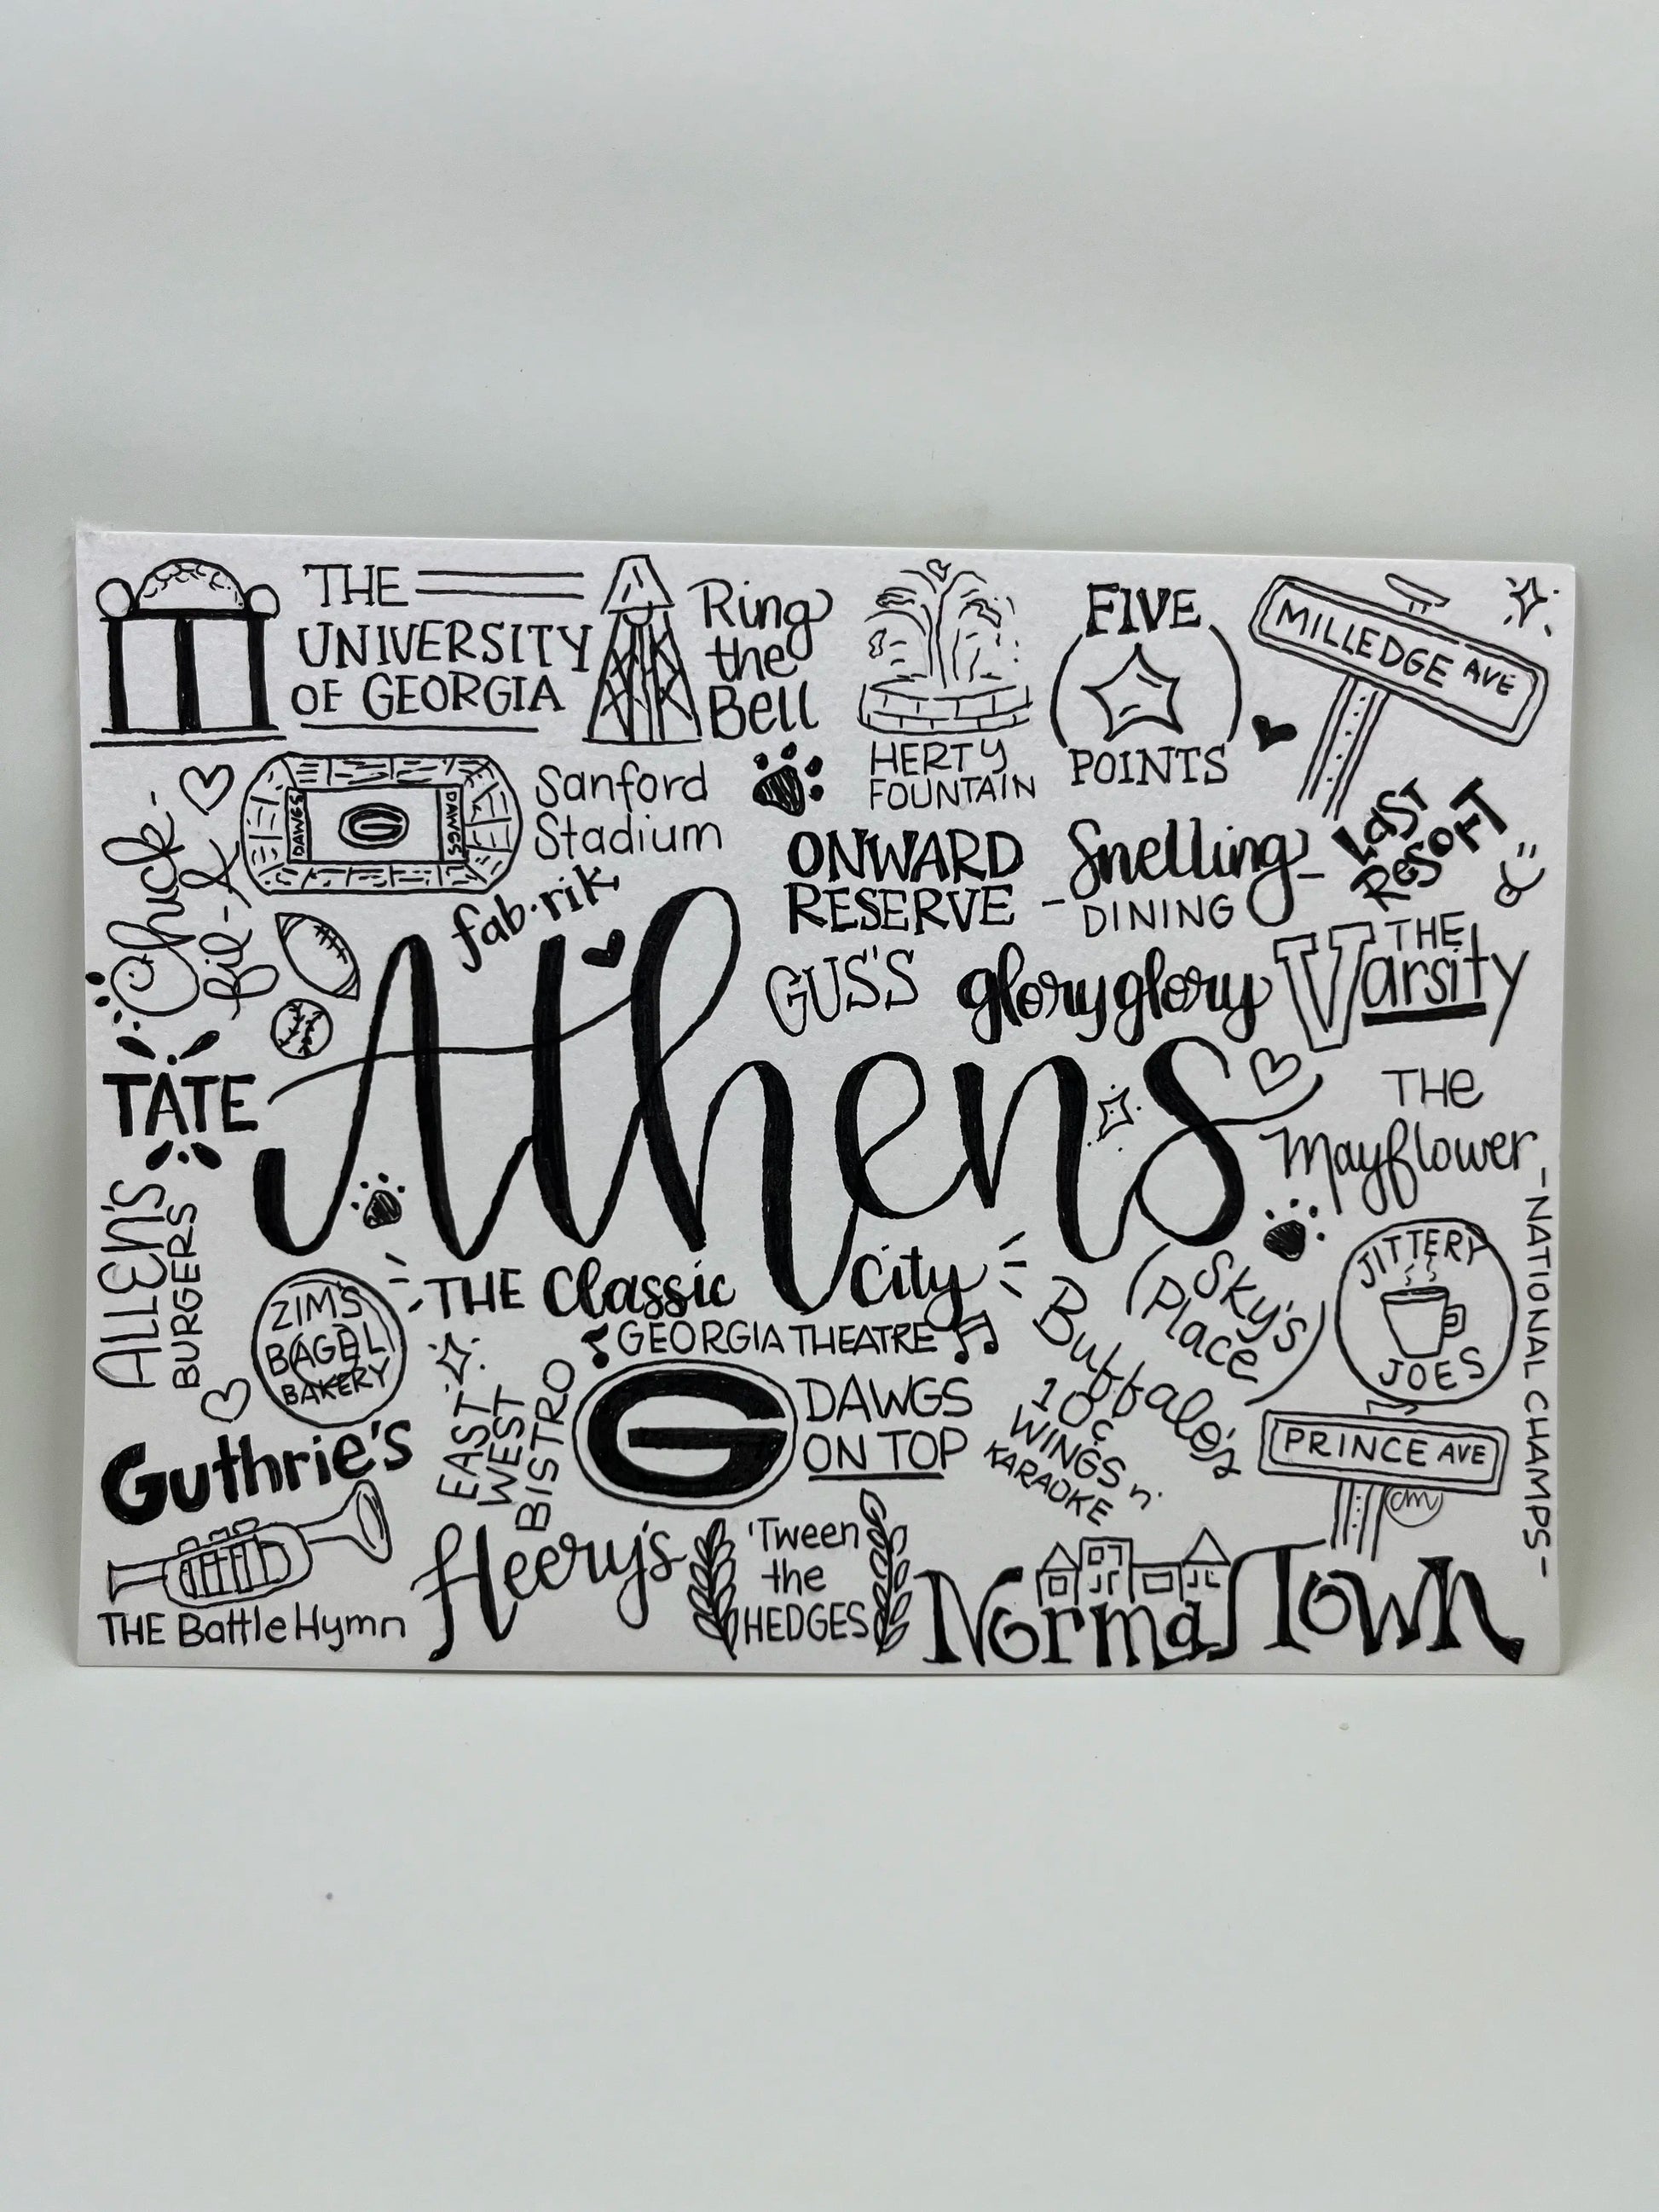 THE
UNIVERSITY
OF GEORGIA
Ring
the
Bell
HERTY
FOUNTAIN
FIVE
POINTS
MILLEDGE AVE
Chuck-
fil-A
DAWGS
G
DAWGS
Sanford
Stadium
fab'rik
ONWARD
RESERVE
-Snelling-
DINING
LAST
RESORT
GUS'S
glory glory
THE
Varsity
TATE
Athens
THE
Mayflower
ALLEN'S
BURGERS
ZIM'S
BAGEL
BAKERY
THE Classic City
GEORGIA THEATRE
SKY'S
Place
JITTERY
JOES
-NATIONAL CHAMPS-
Guthrie's
EAST
WEST
BISTRO
G
DAWGS
ON TOP
Buffalo's
10¢
WINGS n'
KARAOKE
PRINCE AVE
cm
THE Battle Hymn
Heery's
'Tween
the
HEDGES
Normal Town